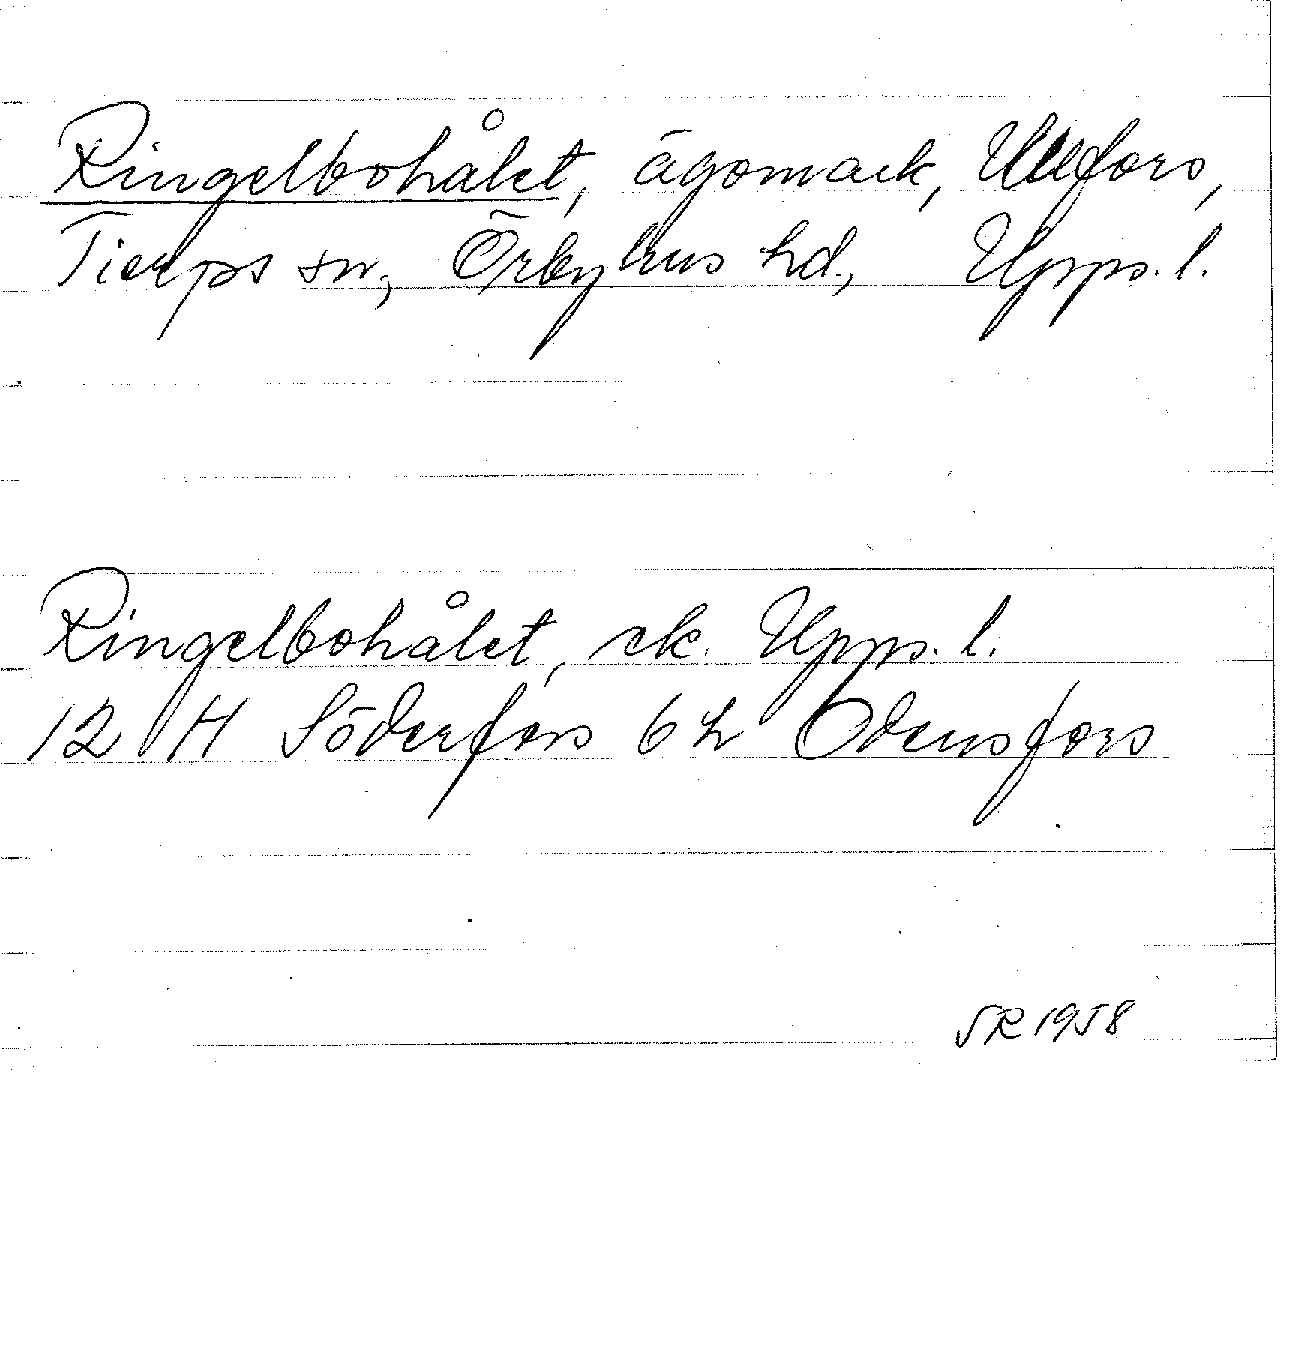 Ringelbohålet, ägomark, Ullfors,
Tierps sn, Örbyhus hd, Upps. l.
Ringelbohålet, ek. Upps. l.
12 H Söderfors 6 h Odensfors
SR 1958